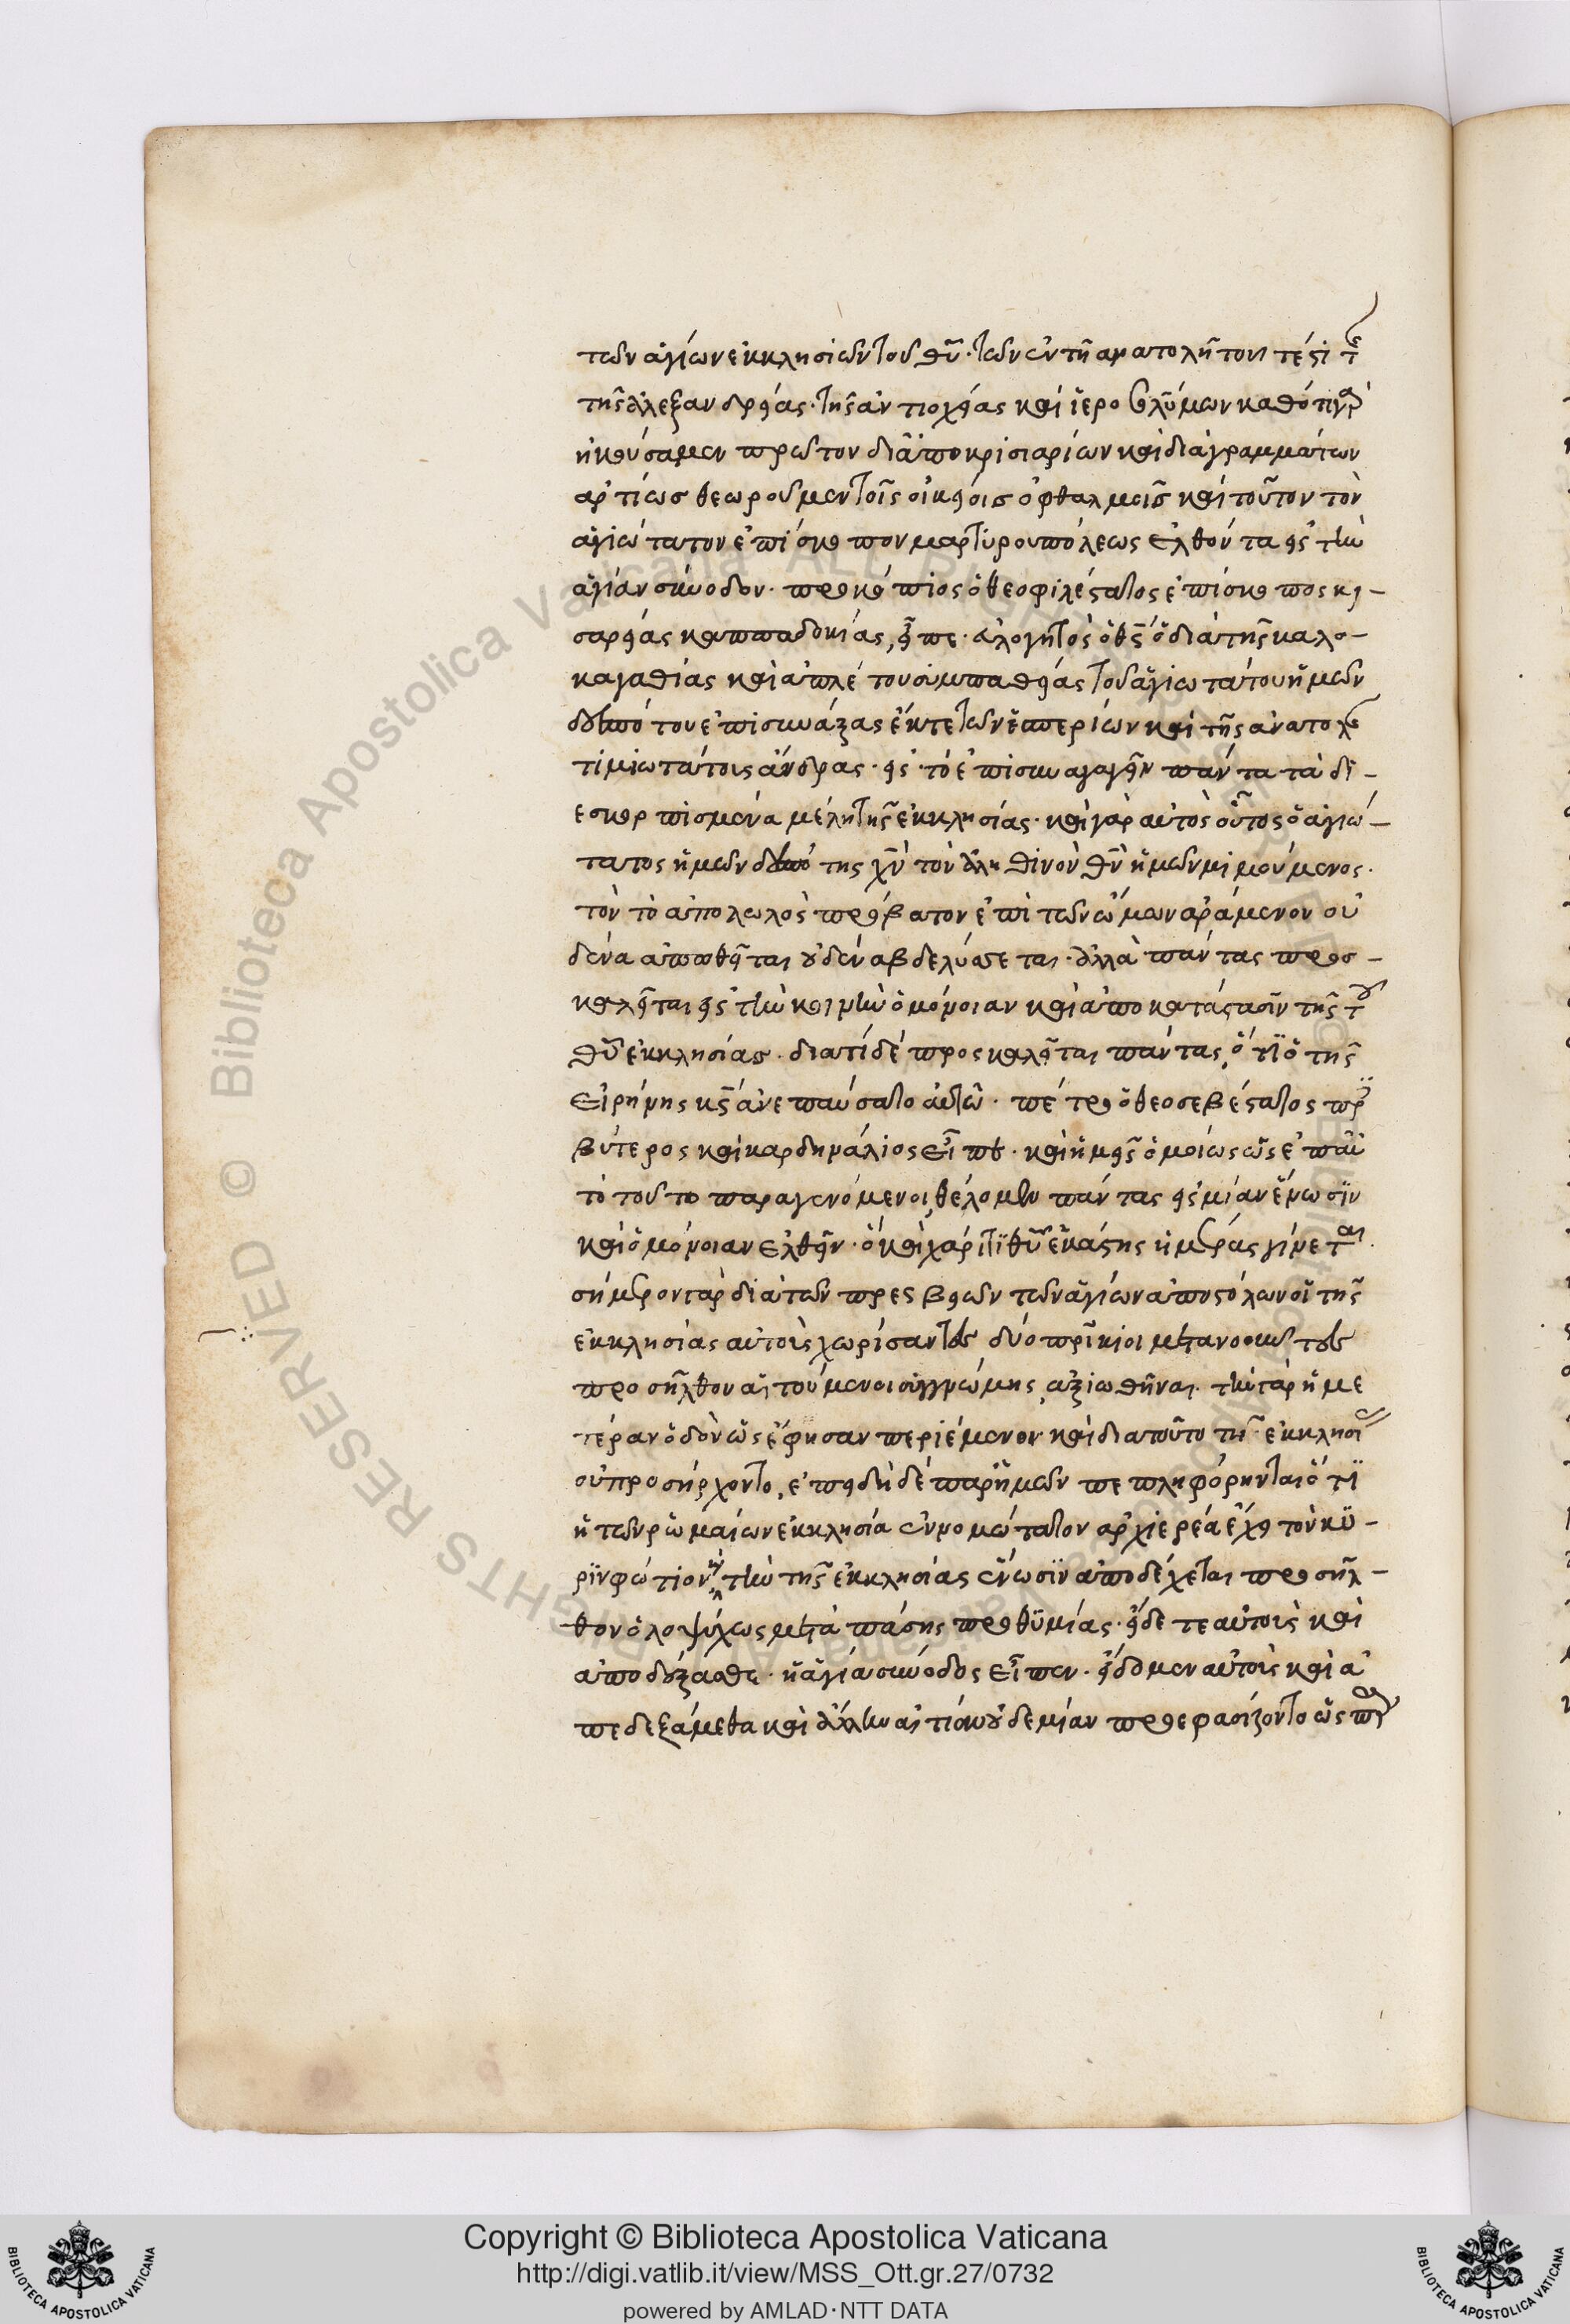 τῶν ἁγίων ἐκκλησιῶν τοῦ θῦ· τῶν ἐν τῇ ἀνατολῇ τουτέστι τ
τῆς ἀλεξανδρείας· τῆς ἀντιοχείας καὶ ἱεροσολύμων καθότι γὰρ
ἠκούσαμεν πρῶτον διὰ ἀποκρισιαρίων καὶ διὰ γραμμάτων
ἀρτίως θεωροῦμεν τοῖς οἰκείοις ὀφθαλμοῖς καὶ τοῦτον τὸν
ἁγιώτατον ἐπίσκοπον μαρτυρουπόλεως ἐλθόντα εἰς τὴν
ἁγίαν σύνοδον· προκόπιος ὁ θεοφιλέστατος ἐπίσκοπος και-
σαρείας καππαδοκίας, εἶπε· εὐλογητὸς ὁ θς ὁ διὰ τῆς καλο-
καγαθίας καὶ ἀπλέτου συμπαθείας τοῦ ἁγιωτάτου ἡμῶν
δεσπότου ἐπισυνάξας ἔκ τε τῶν ἑσπερίων καὶ τῆς ἀνατολ
τιμιωτάτους ἄνδρας· εἰς τὸ ἐπισυναγαγεῖν πάντα τὰ δι-
εσκορπισμένα μέλη τῆς ἐκκλησίας· καὶ γὰρ αὐτὸς οὗτος ὁ ἁγιώ-
τατος ἡμῶν δεσπότης χν τὸν ἀληθινὸν θν ἡμῶν μιμούμενος·
τὸν τὸ ἀπολωλὸς πρόβατον ἐπὶ τῶν ὤμων ἀράμενον οὐ
δένα ἀπωθεῖται οὐδένα βδελύσσεται· ἀλλὰ πάντας προσ-
καλεῖται εἰς τὴν κοινὴν ὁμόνοιαν καὶ ἀποκατάστασιν τῆς τοῦ
θῦ ἐκκλησίας· διατί δὲ προσκαλεῖται πάντας, ὅτι ὁ τῆς
εἰρήνης κς ἀνεπαύσατο αὐτῷ· πέτρος ὁ θεοσεβέστατος πρ
βύτερος καὶ καρδηνάλιος εἶπεν· καὶ ἡμεῖς ὁμοίως ὡς ἐπ αὐ
τὸ τοῦτο παραγενόμενοι, θέλομεν πάντας εἰς μίαν ἕνωσιν
καὶ ὁμόνοιαν ἐλθεῖν· ὃ καὶ χάριτι θῦ ἑκάστης ἡμέρας γίνεται·
σήμερον γὰρ διὰ τῶν πρεσβειῶν τῶν ἁγίων ἀποστόλων οἱ τῆς
ἐκκλησίας αὐτοὺς χωρίσαντες δύο πρίγκιοι μετανοοῦντες
προσῆλθον αἰτούμενοι συγγνώμης, ἀξιωθῆναι· τὴν γὰρ ἡμε
τέραν ὁδὸν ὡς ἔφησαν περιέμενον· καὶ διατοῦτο τῇ ἐκκλησί
οὐ προσήρχοντο, ἐπειδὴ δὲ παρ ἡμῶν πεπληφόρηνται ὅτι
ἡ τῶν ῥωμαίων ἐκκλησία ἐννομώτατον ἀρχιερέα ἔχει τὸν κύ-
ριν φώτιον τὴν τῆς ἐκκλησίας ἕνωσιν ἀποδέχεται προσῆλ-
θον ὁλοψύχως μετὰ πάσης προθυμίας· εἴδετε αὐτοὺς καὶ
ἀποδέξασθε· ἡ ἁγία σύνοδος εἶπεν· εἴδομεν αὐτοὺς καὶ ἀ
πεδεξάμεθα καὶ ἄλλην αἰτίαν οὐδεμίαν προεφασίζοντο ὡς
Copyright © Biblioteca Apostolica Vaticana
http://digi.vatlib.it/view/MSS_Ott.gr.27/0732
powered by AMLAD·NTT DATA